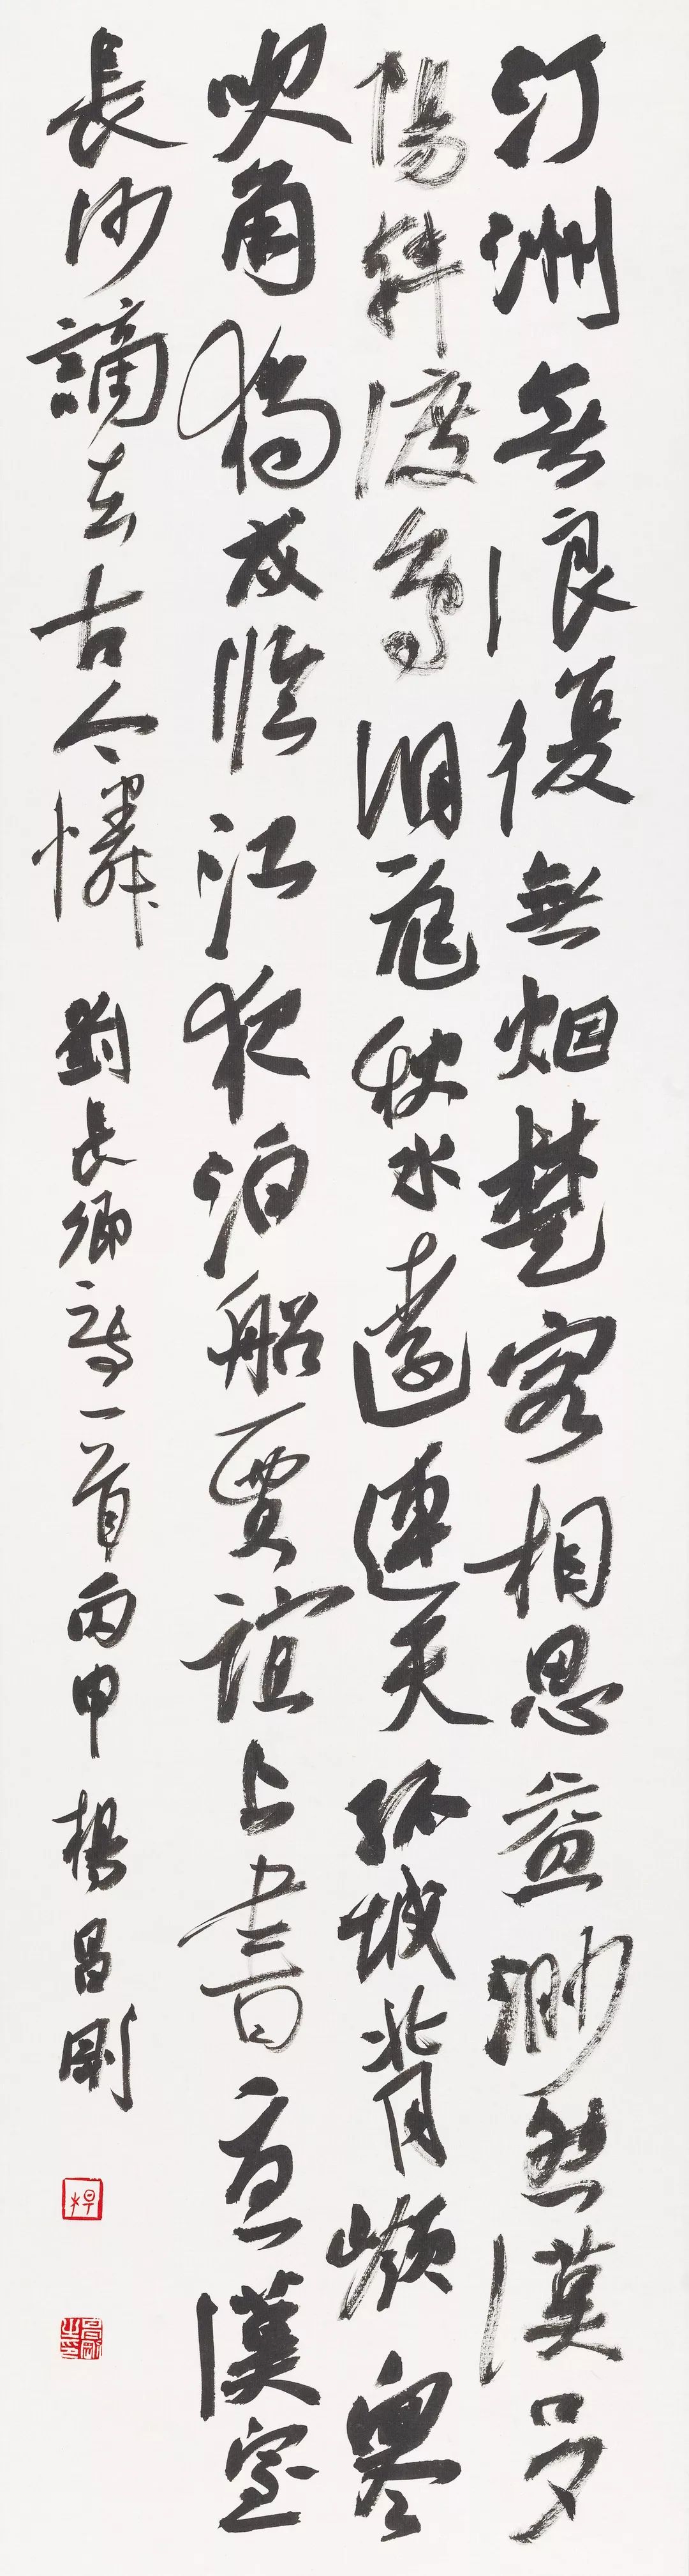 汀洲無浪復無烟楚客相思益渺然漢口夕
陽斜渡鳥洞庭秋水遠連天孤城背嶺寒
吹角獨戍臨江夜泊船賈誼上書憂漢室
長沙謫去古今憐 劉長卿詩一首丙申楊昌剛